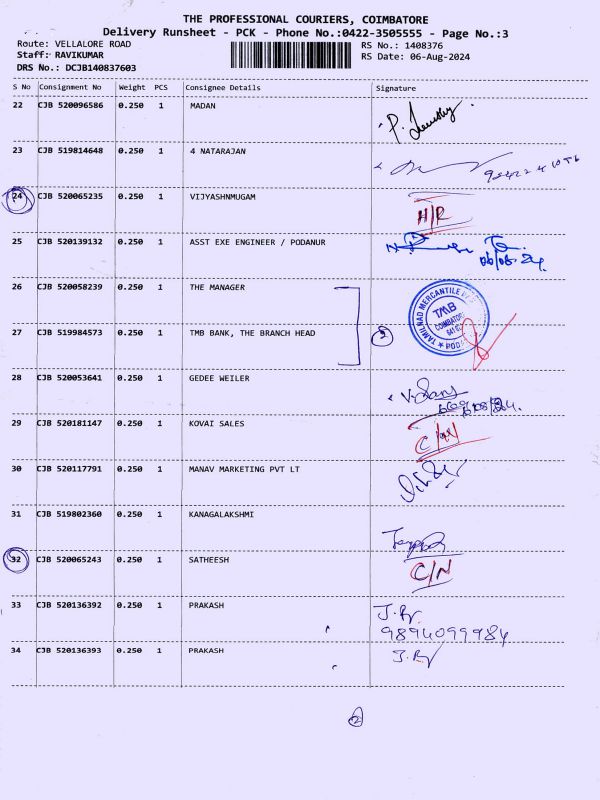 THE PROFESSIONAL COURIERS, COIMBATORE
Delivery Runsheet - PCK - Phone No.:0422-3505555 - Page No.:3
Route: VELLALORE ROAD
RS No.: 1408376
Staff: RAVIKUMAR
RS Date: 06-Aug-2024
DRS No.: DCJB140837603
S No Consignment No Weight PCS Consignee Details Signature
22 CJB 520096586 0.250 1 MADAN
23 CJB 519814648 0.250 1 4 NATARAJAN
24 CJB 520065235 0.250 1 VIJYASHNMUGAM H/R
25 CJB 520139132 0.250 1 ASST EXE ENGINEER / PODANUR
06/08.24.
26 CJB 520058239 0.250 1 THE MANAGER
TAMILNAD MERCANTILE
TMB
COIMBATORE
27 CJB 519984573 0.250 1 TMB BANK, THE BRANCH HEAD 2
28 CJB 520053641 0.250 1 GEDEE WEILER
29 CJB 520181147 0.250 1 KOVAI SALES
30 CJB 520117791 0.250 1 MANAV MARKETING PVT LT
31 CJB 519802360 0.250 1 KANAGALAKSHMI
32 CJB 520065243 0.250 1 SATHEESH C/N
33 CJB 520136392 0.250 1 PRAKASH
9894099984
34 CJB 520136393 0.250 1 PRAKASH
2